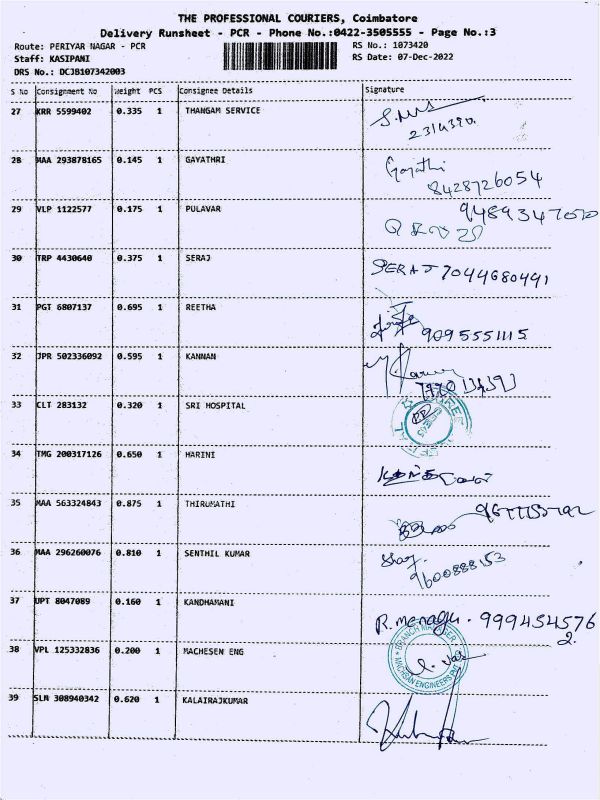 THE PROFESSIONAL COURIERS, Coimbatore
Delivery Runsheet - PCR - Phone No.:0422-3505555 - Page No.:3
Route: PERIYAR NAGAR - PCR RS No.: 1073420
Staff: KASIPANI RS Date: 07-Dec-2022
DRS No.: DCJB107342003
S No Consignment No Weight PCS Consignee Details Signature
27 KRR 5599402 0.335 1 THANGAM SERVICE
28 MAA 293878165 0.145 1 GAYATHRI Gayathi
8428726054
29 VLP 1122577 0.175 1 PULAVAR
30 TRP 4430640 0.375 1 SERAJ SERAJ 7044680491
31 PGT 6807137 0.695 1 REETHA
9095551115
32 JPR 502336092 0.595 1 KANNAN
33 CLT 283132 0.320 1 SRI HOSPITAL
34 TMG 200317126 0.650 1 HARINI
35 MAA 563324843 0.875 1 THIRUMATHI
36 MAA 296260076 0.810 1 SENTHIL KUMAR
9600888153
37 UPT 8047089 0.160 1 KANDHAMANI
R. menaga. 999454576
2.
38 VPL 125332836 0.200 1 MACHESEN ENG
BRANCH MANAGER
MACHSAN ENGINEERS PVT
39 SLM 308940342 0.620 1 KALAIRAJKUMAR